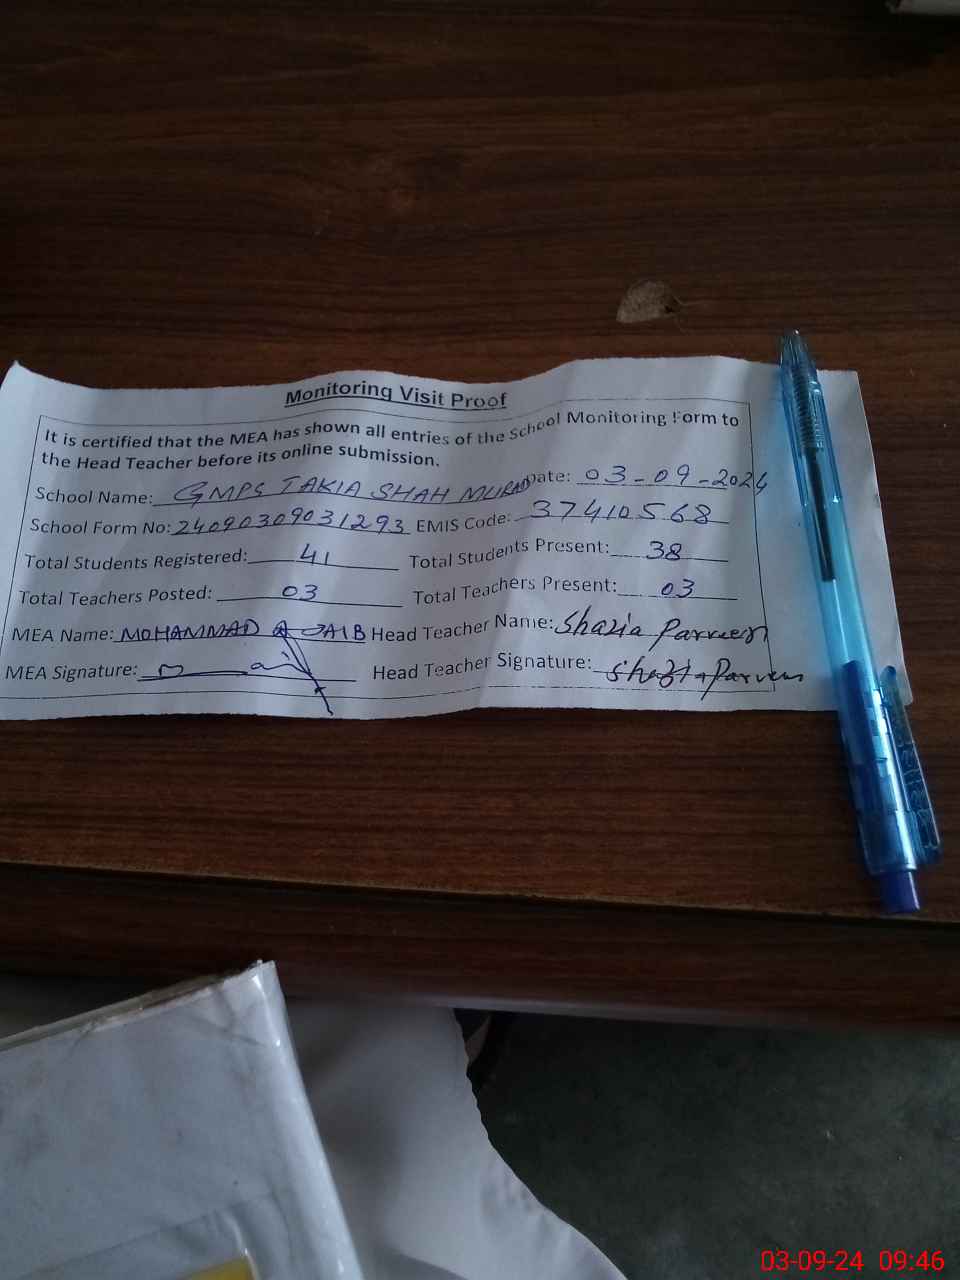 Monitoring Visit Proof
It is certified that the MEA has shown all entries of the School Monitoring Form to
the Head Teacher before its online submission.
School Name: GMPS TAKIA SHAH MURAD Date: 03-09-2024
School Form No: 24090309031293 EMIS Code: 37410568
Total Students Registered: 41 Total Students Present: 38
Total Teachers Posted: 03 Total Teachers Present: 03
MEA Name: MOHAMMAD Head Teacher Name: Shazia Parveen
MEA Signature: Head Teacher Signature: Shazia Parveen
03-09-24 09:46